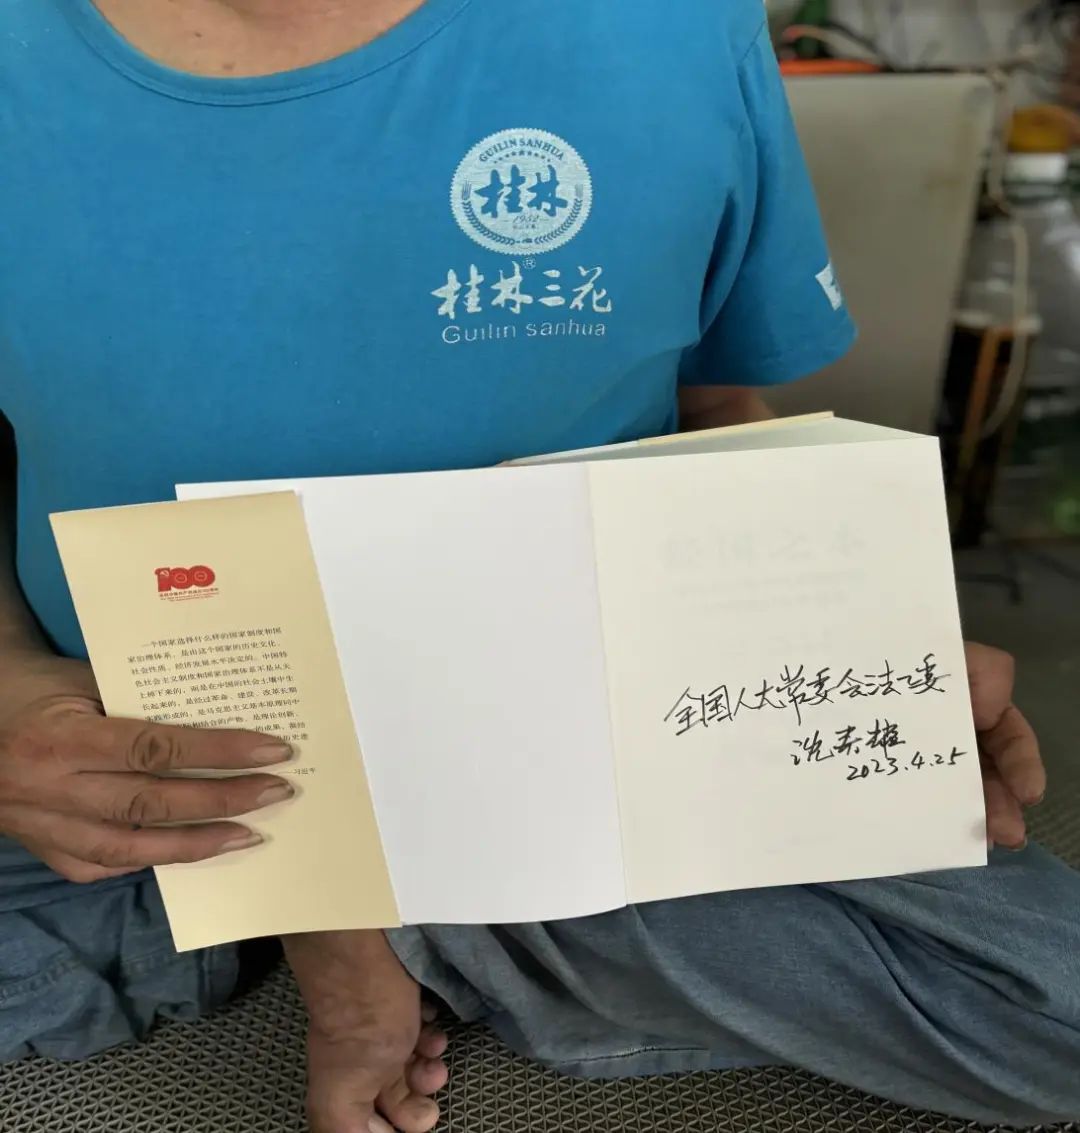 GUILIN SANHUA
桂林
1952
桂林三花®
Guilin sanhua
100
一个国家选择什么样的国家制度和国
家治理体系，是由这个国家的历史文化、
社会性质、经济发展水平决定的。中国特
色社会主义制度和国家治理体系不是从天
上掉下来的，而是在中国的社会土壤中生
长起来的，是经过革命、建设、改革长期
实践形成的，是马克思主义基本原理同中
相结合的产物，是理论创新、
的成果，凝结
历史逻
——习近平
全国人大常委会法工委
沈春雄
2023.4.25